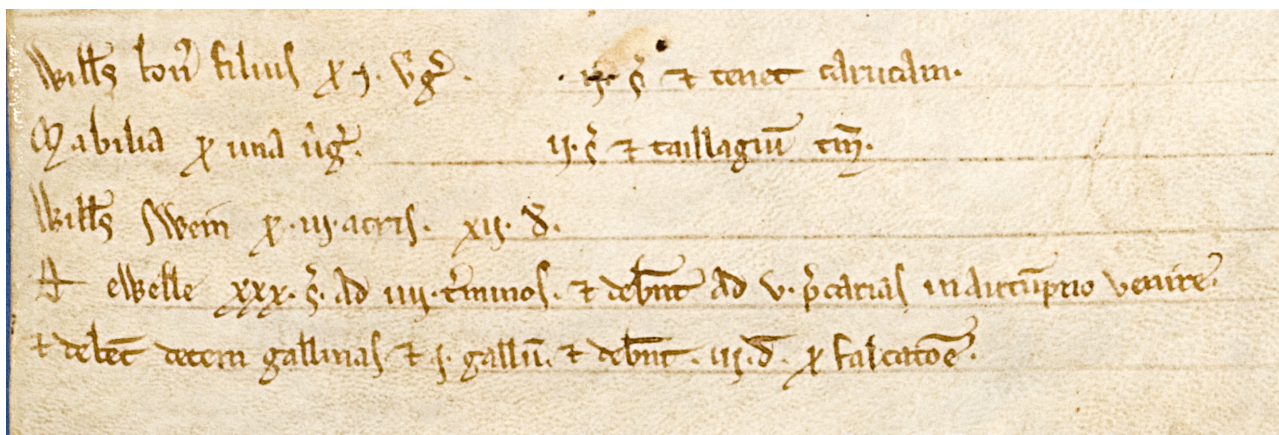 Willꝭs bon̄ filius ꝑ .j. v̓g̓. .ij. s̓ ⁊ tenet carucam.
Mabilia ꝑ una v̓g̓. ii. s̓. ⁊ taillagiū tm̄.
Willꝭs swein ꝑ .iii. acris. xii. đ.
ewelle xxx. s̓. ad iiii. t̓minos. ⁊ debn̄t ad v. p̓carias in autūpno venire.
⁊ debet decem gallinas ⁊ i. gallū. ⁊ debn̄t. iii. đ. ꝑ falcatōe.